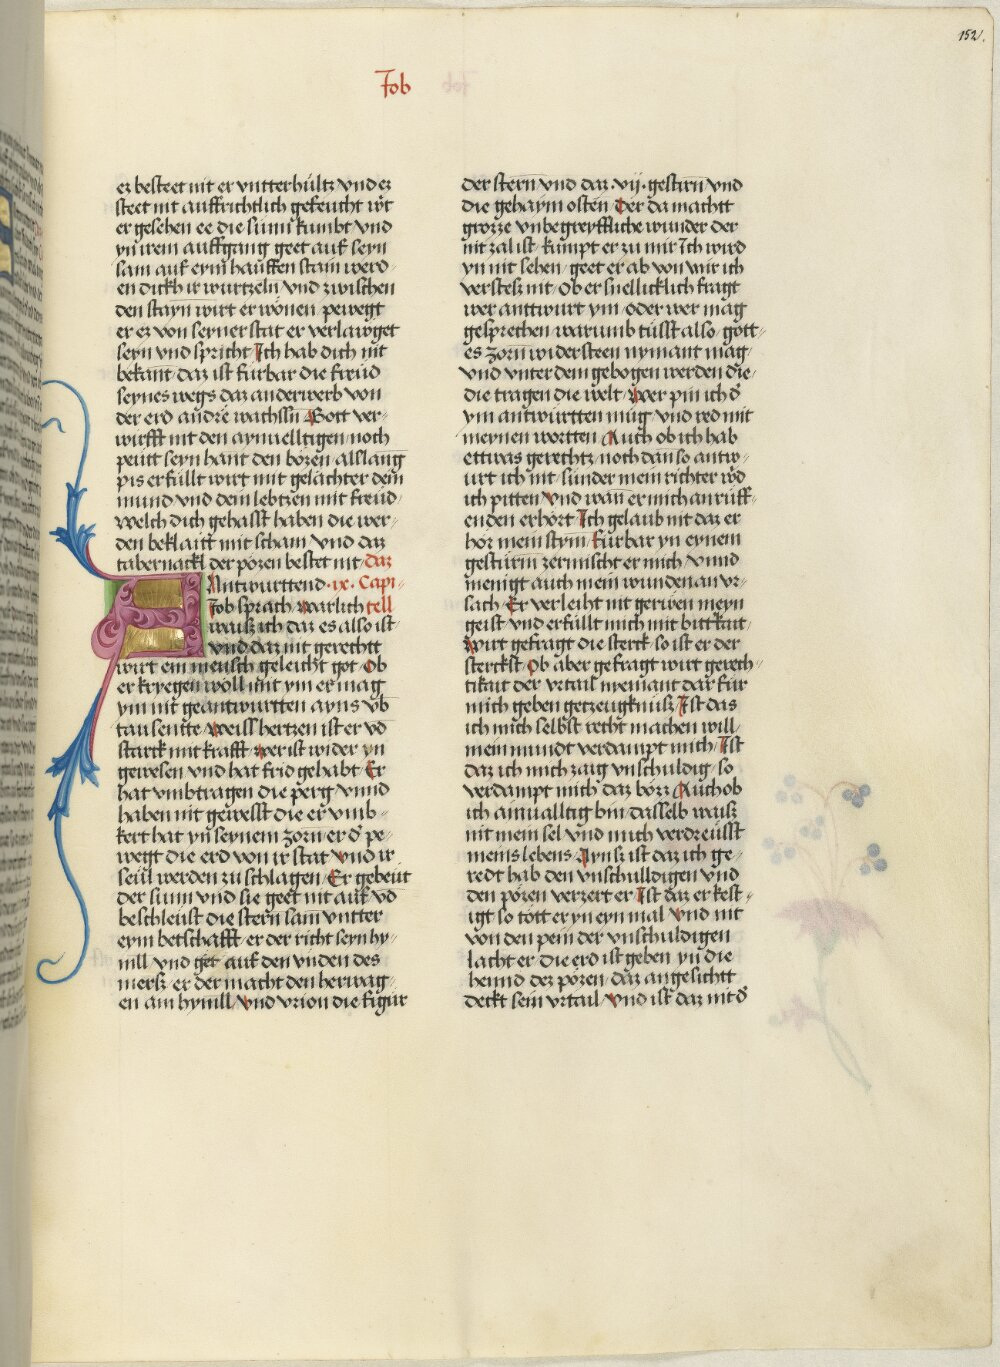 152.
Job
ez besteet nit er vntterhültz vnd ez
steet nit auffrichtlich gefeucht wirt
er gesehen ee die sunn kumbt vnd
yn irem auffgang geet auf seyn
sam auf eym hauffen stain werd-
en dickh ir wurtzeln vnd zwischen
den stayn wirt er wonen pewegt
er ez von seyner stat er verlawget
sein vnd spricht Ich hab dich nit
bekant daz ist furbar die freüd
seynes wegs daz anderwerb von
der erd andre wachssn Gott ver-
wirfft nit den aynuelltigen noch
peütt seyn hant den bözen alslang
pis erfüllt wirt mit gelächter dein
mund vnd dein lebtzen mit freüd
welch dich gehasst haben die wer-
den beklaitt mit scham vnd daz
tabernackl der pözen bestet nit daz
Antwurttend ix. Capi-
Job sprach warlich tell
waisz ich daz es also ist
vnd daz nit gerechtt
wirt ein mensch geleicht got Ob
er kryegen wöll mit ym er mag
ym nit geantwurtten ayns vb
tausentte Weiss hertzen ist er vnd
starck mit krafft wer ist wider yn
gewesen vnd hat frid gehabt Er
hat vmbtragen die perg vnnd
haben nit gewesst die er vmb-
kert hat yn seynem zorn er d pe-
wegt die erd von ir stat vnd ir
seül werden zu schlagen Er gebeüt
der sunn vnd sie geet nit auf vnd
beschleust die stern sam vntter
eym betschafft er der richt seyn hy-
mll vnd get auf den vnden des
mersz er der macht den herwag-
en am hymll vnd vrion die figur
der stern vnd daz vij gestirn vnd
die gehaym osten Der da machtt
grozze vnbegreyffliche wunder der
nit zal ist kumpt er zu mir Ich wird
yn nit sehen geet er ab von mir ich
verstesz nit Ob er snellicklich fragt
wer anttwurt ym oder wer mag
gesprechen warumb tüsst also gott-
es zorn widersteen nymant mag
vnd vnter dem gebogen werden die
die tragen die welt Wer pin ich d
ym antwürtten müg vnd red mit
meynen wortten Auch ob ich hab
ettwas gerechtz noch dan so antw-
urt ich nit sünder mein richter wd
ich pitten Vnd wan er mich anruff-
enden erhört Ich gelaub nit daz er
hör mein stym Furbar yn eynem
gestürm zermischt er mich vnnd
menigt auch mein wunden an vr-
sach Er verleiht nit gerwen meyn
geist vnd erfüllt mich mit bittkait
Wirt gefragt die sterck so ist er der
sterckst Ob aber gefragt wirt gerech-
tikait der vrtail niemant dar für
mich geben getzeugknüsz Ist das
ich mich selbst recht machen will
mein mundt verdampt mich Ist
daz ich mich zaig vnschuldig so
verdampt mich daz börz Auch ob
ich ainualltig bin dasselb waisz
nit mein sel vnd mich verdreüsst
meins lebens Aynsz ist daz ich ge-
redt hab den vnschulldigen vnd
den pözen verzert er Ist daz er kest-
igt so tött er yn eyn mal Vnd nit
von den pein der vnschuldigen
lacht er die erd ist geben yn die
hennd dez pözen daz angesichtt
deckt sein vrtail Vnd ist daz nit d